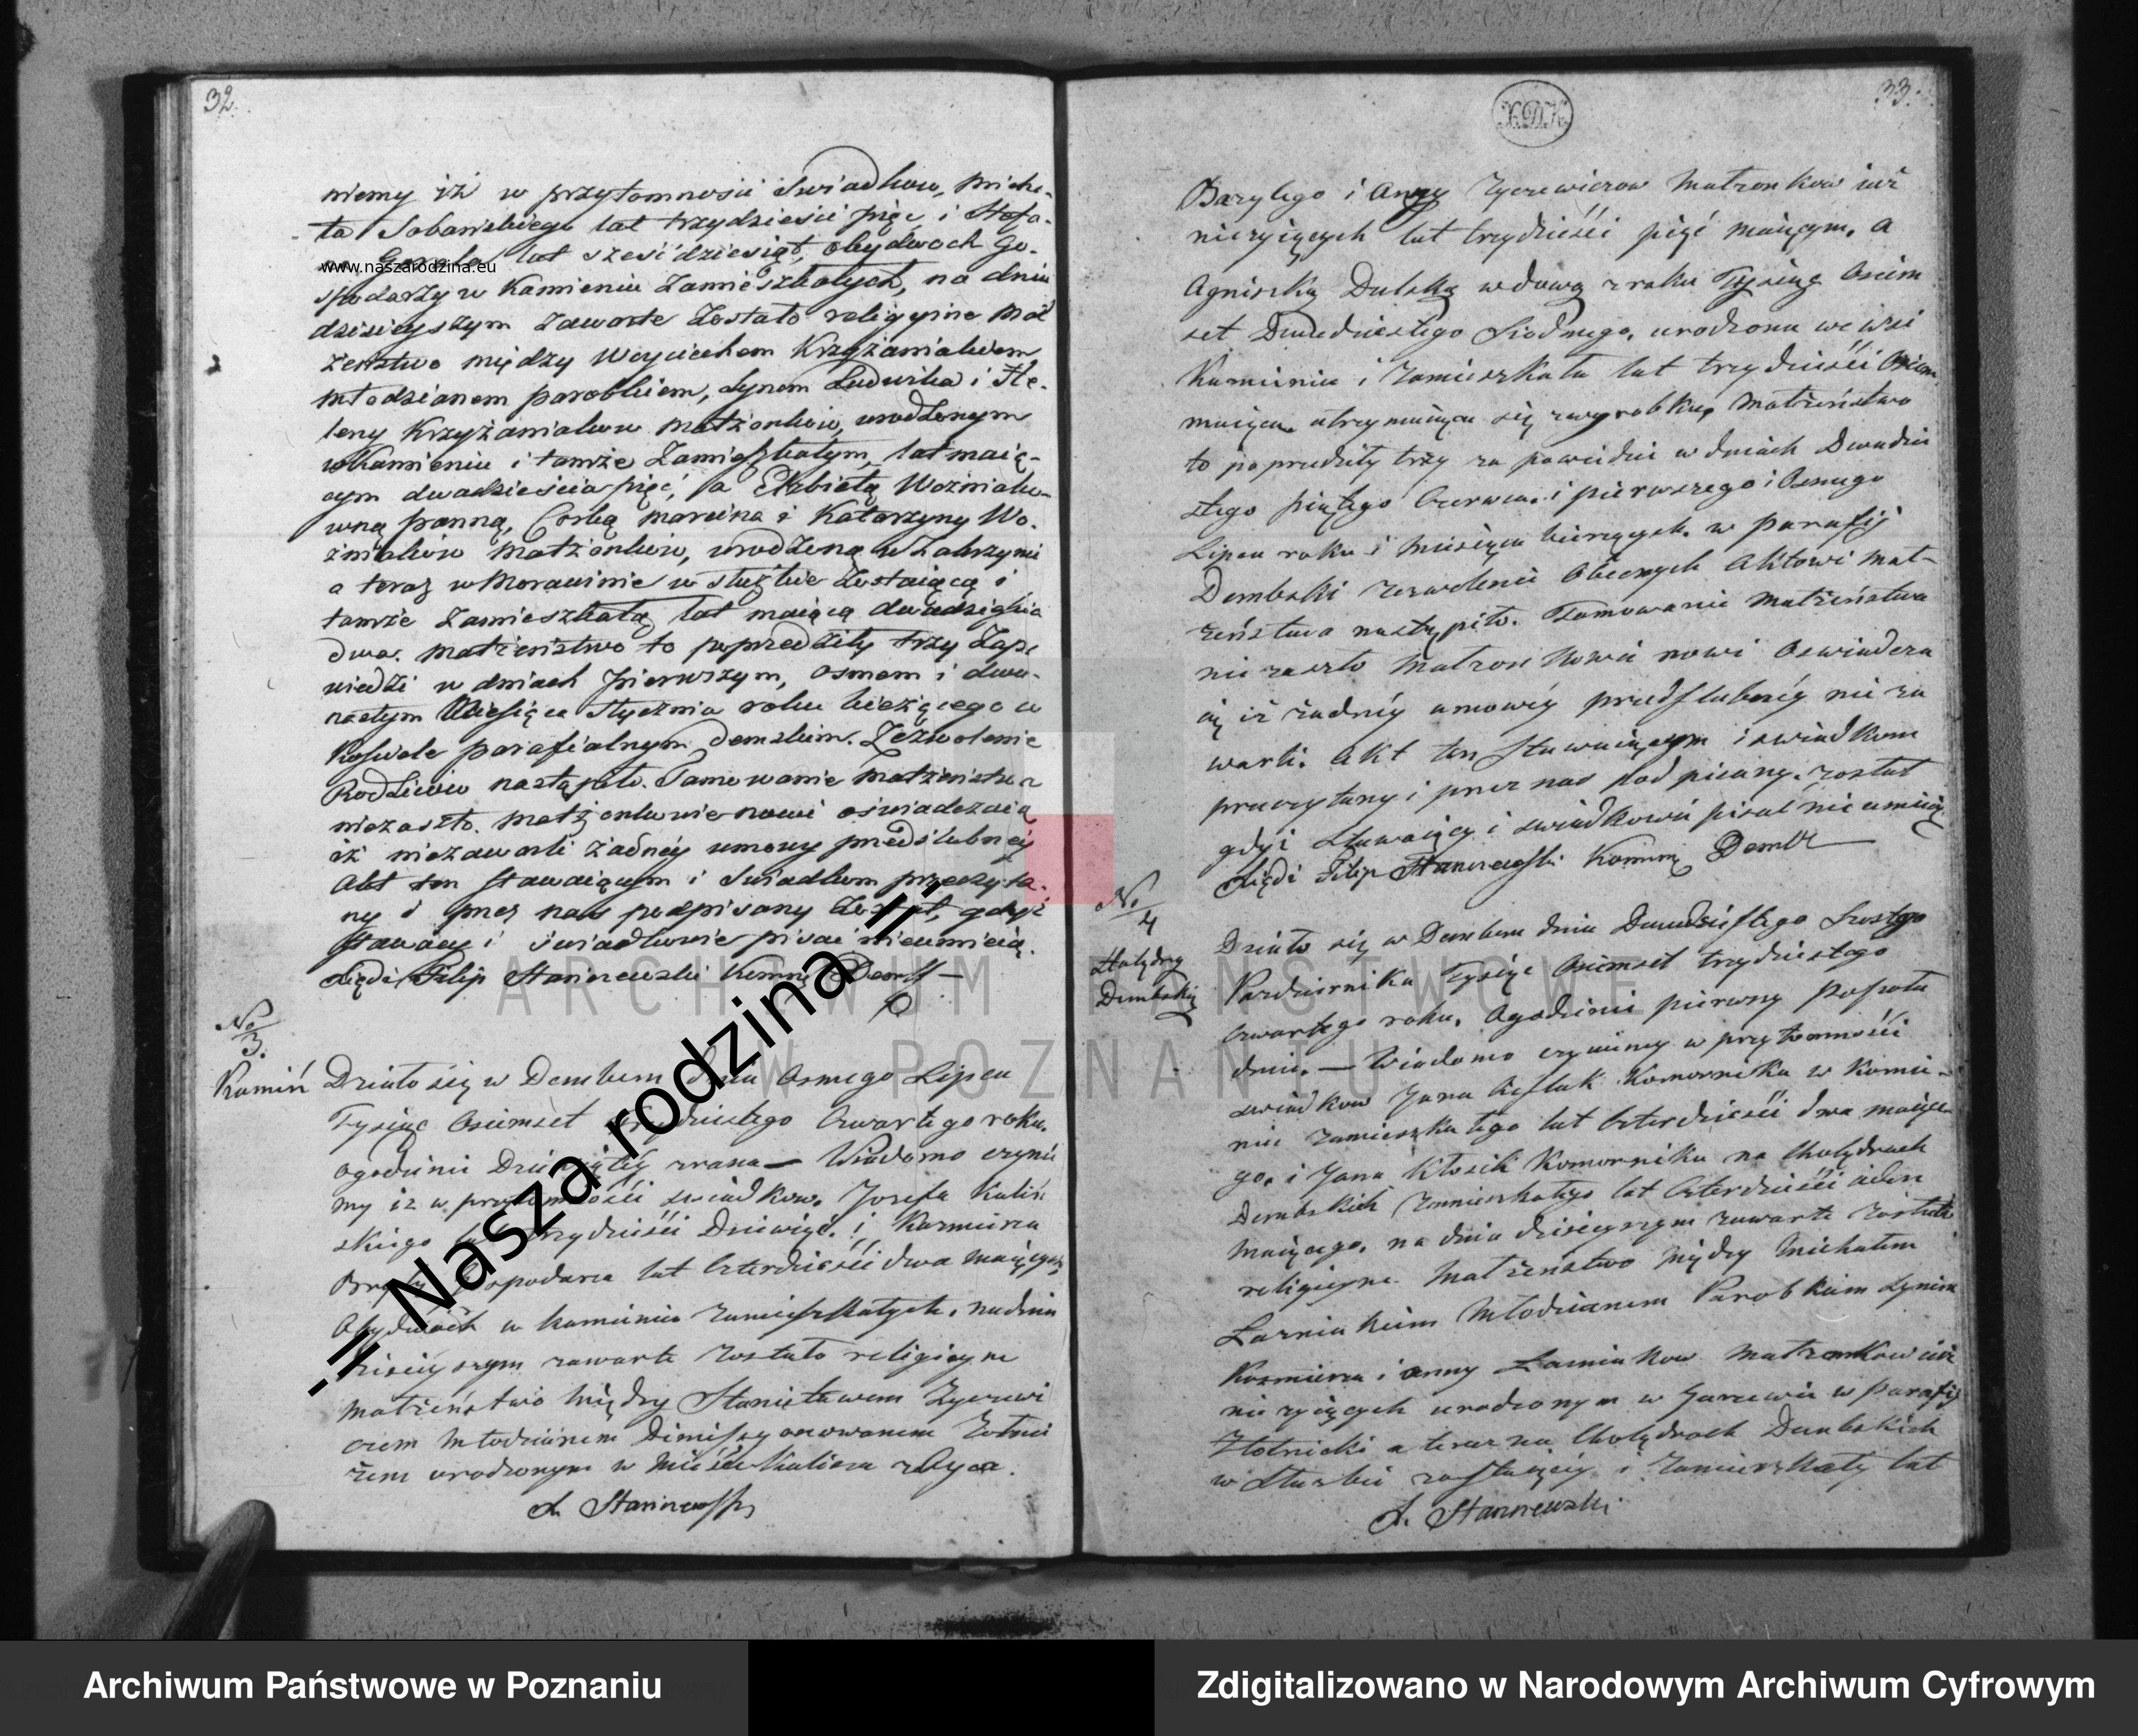 32.
niemy iż w przytomności Swiadkow, Micha-
ła Sobańskiego lat trzydzieści pięć i Stefa-
lat sześćdziesiąt, obydwoch Go-
www.naszarodzina.eu
spodarzy w Kamieniu Zamieszkałych, na dniu
dzisieyszym zawarte Zostało religiyne Mał
żeństwo między Woyciechem Krzyżaniakiem
młodzianem parobkiem, Synem Ludwika i He-
leny Krzyżaniaków Małżonków, urodzonym
w Kamieniu i tamże Zamieszkałym, lat maią-
cym dwadzieścia pięć, a Elżbietą Woźniako-
wną panną, Corką Marcina i Katarzyny Wo-
źniaków Małżonków, urodzoną w
a teraz w Morawinie w służbie Zostaiącą i
tamże Zamieszkałą lat maiącą dwadzieścia
dwa. Małżeństwo to poprzedziły trzy Zapo
wiedzi w dniach pierwszym, osmem i dwu-
nastym Miesiąca Stycznia roku bieżącego w
Kościele parafialnym Dembskim. Zezwolenie
Rodziców nastąpiło. Tamowanie Małżeństwa
niezaszło. Małżonkowie nowi oświadczaią
iż niezawarli żadney umowy przedślubney
Akt ten stawaiącym i Swiadkom przeczyta-
ny i przez nas podpisany Został, gdyż
stawaiący i Swiadkowie pisać nieumieią.
Xiądz Filip Staniszewski Komm: Demb
No
3.
Kamiń Działo się w Dembem dnia Osmego Lipca
Tysiąc Osimset trzydziestego Czwartego roku,
ogodzinie Dziewiątey zrana — Wiadomo czynie
my iz w przytomności swiadkow, Josefa Kaliń
skiego lat trzydzieści Dziewięć, i Kazmierza
Gospodarza lat Czterdzieści dwa maiących
Obydwóch w kamieniu zamieszkałych, na dniu
dzisieyszym zawarte zostało religiyne
Małżeństwo między Stanisławem Zycrewi
czem Młodzianem Dimissyonowanem Żołnie
rzem urodzonym w Mieście Kaliszu z Oyca.
X. Staniszewski
33.
X.D.K.
Bazylego i Anny Zycrewiczow Małzonkow iuż
nieżyiących lat trzydzieści pięć maiącym, a
Agniszką Dulską wdową z roku Tysiąc Osiem
set Dwudziestego Siodmego, urodzona we wsi
Kamieniu i Zamieszkała lat trzydzieści Osiem
maiąca utrzymuiąca się z wyrobku, Małżeństwo
to poprzedziły trzy za powiedzi w dniach Dwudzie
stego piątego Czerwca i pierwszego i Osmego
Lipca roku i Miesiąca bierzących w parafij
Dembski Zezwolenie Obecnych Aktowi Mał-
żeństwa nastąpiło. Tamowanie Małżeństwa
nie zaszło Małzonkowie nowi Oswiadcza
ią iż żadney umowy przedslubney nie za
warli. Akt ten Stawaiącym i swiadkom
przeczytany i przez nas pod pisany. został
gdyż Stawaiący i swiadkowie pisać nie umieią
Xiądz Filip Staniszewski Komm: Demb
No
4
Holędry
Dembskie
Działo się w Dembem dnia Dwudziestego Szostego
Pazdziernika Tysiąc Osimset trzydziestego
Czwartego roku, Ogodzinie pierwszy popołu
dniu. — Wiadomo czyniemy w przytomności
swiadkow Jana Komornika w Kamie-
niu zamieszkałego lat Czterdzieści dwa maiące
go, i Jana Kłosik Komornika na Cholędrach
Dembskich Zamieszkałego lat Czterdzieści ieden
maiącego, na dniu dzisieyszym zawarte zostało
religiyne Małżeństwo między Michałem
Młodzianem Parobkiem synem
Kazmierza i Anny Małzonkow iuż
nie zyiących urodzonym w w parafij
Złotnicki a teraz na Cholędrach Dembskich
w Służbie zostaiący i Zamieszkały lat
X. Staniszewski
-= Nasza rodzina =-
ARCHIWUM PAŃSTWOWE
W POZNANIU
Archiwum Państwowe w Poznaniu
Zdigitalizowano w Narodowym Archiwum Cyfrowym